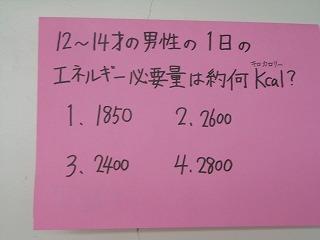 12～14才の男性の1日の
キロカロリー
エネルギー必要量は約何Kcal?
1. 1850 2. 2600
3. 2400 4. 2800